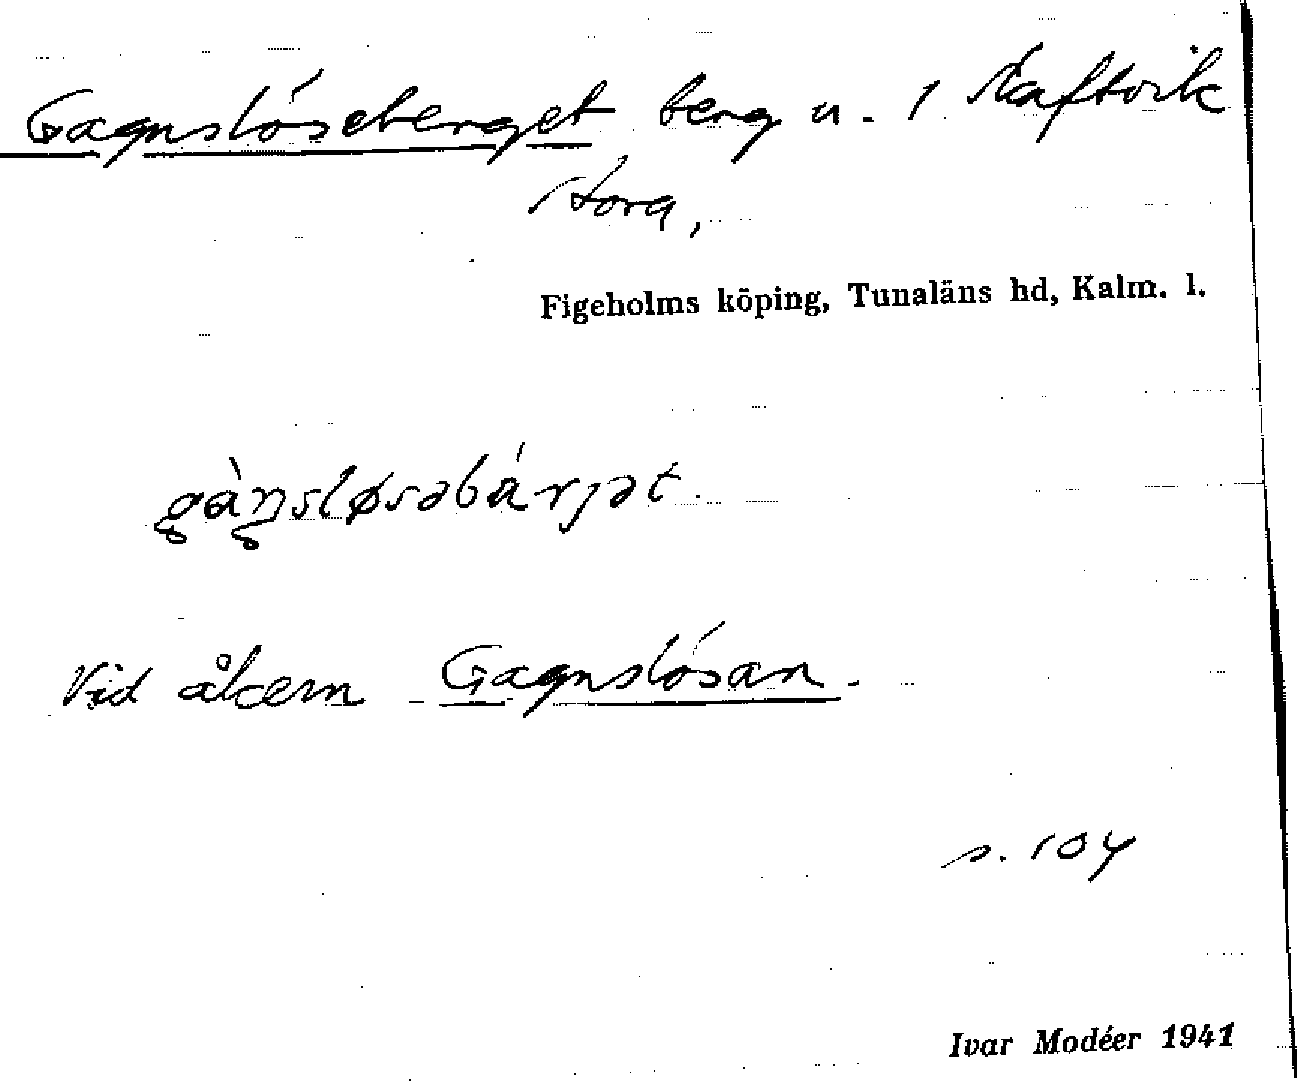 Gagnslöseberget berg u. 1 Kaftvik
Stora,
Figeholms köping, Tunaläns hd, Kalm. l.
Vid åkern Gagnslösan.
s. 104
Ivar Modéer 1941